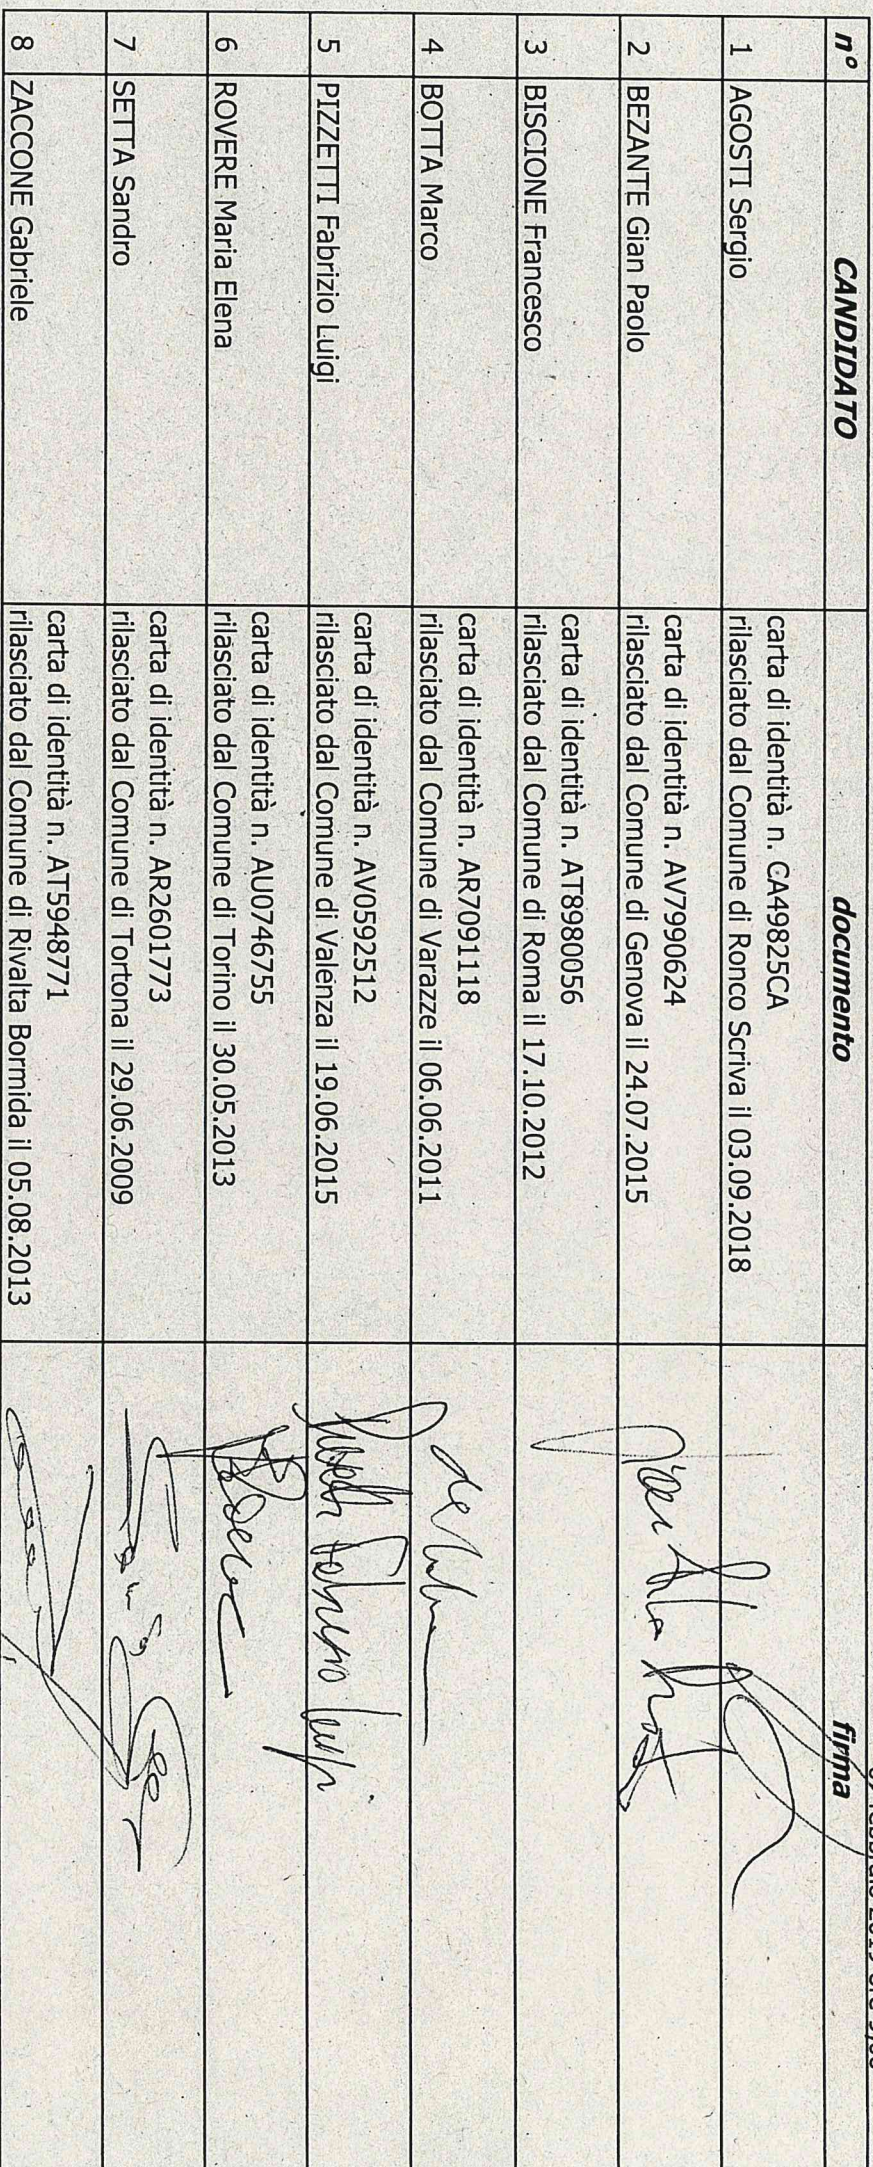 febbraio 2019 ore 9,00
n° CANDIDATO documento firma
1 AGOSTI Sergio carta di identità n. CA49825CA
rilasciato dal Comune di Ronco Scrivia il 03.09.2018
2 BEZANTE Gian Paolo carta di identità n. AV7990624
rilasciato dal Comune di Genova il 24.07.2015
3 BISCIONE Francesco carta di identità n. AT8980056
rilasciato dal Comune di Roma il 17.10.2012
4 BOTTA Marco carta di identità n. AR7091118
rilasciato dal Comune di Varazze il 06.06.2011
5 PIZZETTI Fabrizio Luigi carta di identità n. AV0592512
rilasciato dal Comune di Valenza il 19.06.2015
Pizzetti Fabrizio Luigi
6 ROVERE Maria Elena carta di identità n. AU0746755
rilasciato dal Comune di Torino il 30.05.2013
7 SETTA Sandro carta di identità n. AR2601773
rilasciato dal Comune di Tortona il 29.06.2009
8 ZACCONE Gabriele carta di identità n. AT5948771
rilasciato dal Comune di Rivalta Bormida il 05.08.2013